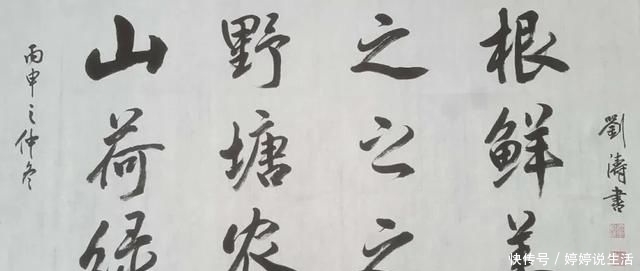 丙申之仲冬
山野之根
荷塘之鲜
绿农之美
劉濤書
快传号/婷婷说生活